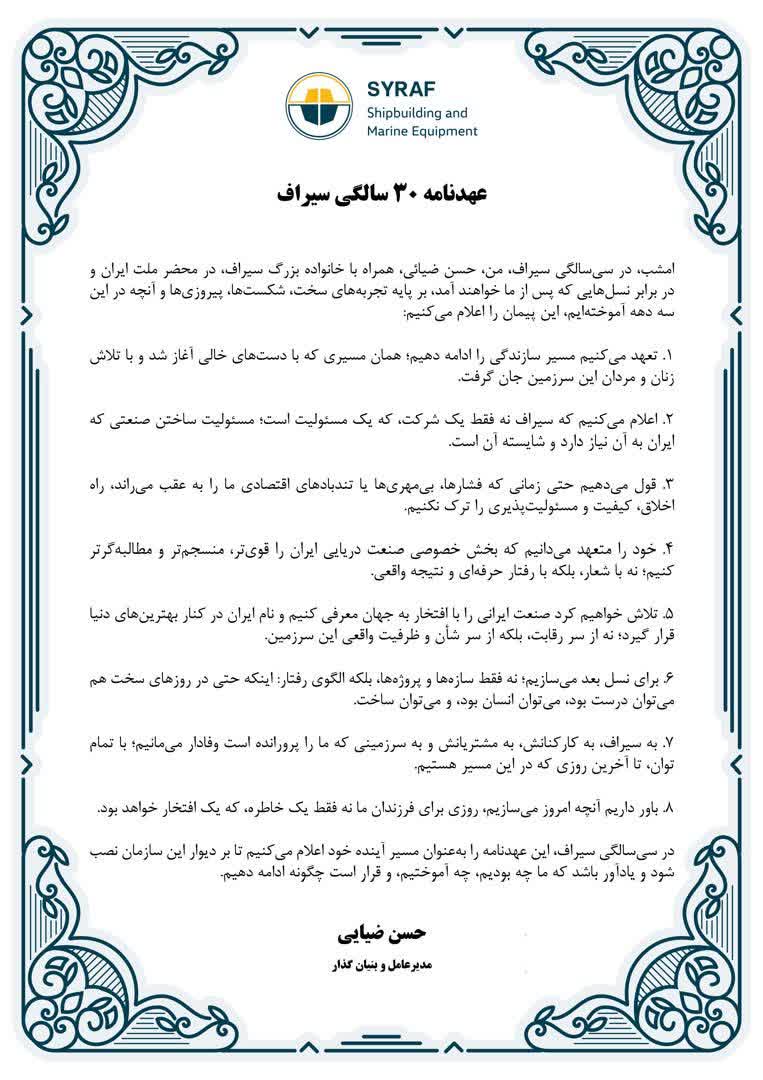 SYRAF
Shipbuilding and
Marine Equipment
عهدنامه ۳۰ سالگی سیراف
امشب، در سی‌سالگی سیراف، من، حسن ضیائی، همراه با خانواده بزرگ سیراف، در محضر ملت ایران و
در برابر نسل‌هایی که پس از ما خواهند آمد، بر پایه تجربه‌های سخت، شکست‌ها، پیروزی‌ها و آنچه در این
سه دهه آموخته‌ایم، این پیمان را اعلام می‌کنیم:
۱. تعهد می‌کنیم مسیر سازندگی را ادامه دهیم؛ همان مسیری که با دست‌های خالی آغاز شد و با تلاش
زنان و مردان این سرزمین جان گرفت.
۲. اعلام می‌کنیم که سیراف نه فقط یک شرکت، که یک مسئولیت است؛ مسئولیت ساختن صنعتی که
ایران به آن نیاز دارد و شایسته آن است.
۳. قول می‌دهیم حتی زمانی که فشارها، بی‌مهری‌ها یا تندبادهای اقتصادی ما را به عقب می‌راند، راه
اخلاق، کیفیت و مسئولیت‌پذیری را ترک نکنیم.
۴. خود را متعهد می‌دانیم که بخش خصوصی صنعت دریایی ایران را قوی‌تر، منسجم‌تر و مطالبه‌گرتر
کنیم؛ نه با شعار، بلکه با رفتار حرفه‌ای و نتیجه واقعی.
۵. تلاش خواهیم کرد صنعت ایرانی را با افتخار به جهان معرفی کنیم و نام ایران در کنار بهترین‌های دنیا
قرار گیرد؛ نه از سر رقابت، بلکه از سر شأن و ظرفیت واقعی این سرزمین.
۶. برای نسل بعد می‌سازیم؛ نه فقط سازه‌ها و پروژه‌ها، بلکه الگوی رفتار: اینکه حتی در روزهای سخت هم
می‌توان درست بود، می‌توان انسان بود، و می‌توان ساخت.
۷. به سیراف، به کارکنانش، به مشتریانش و به سرزمینی که ما را پرورانده است وفادار می‌مانیم؛ با تمام
توان، تا آخرین روزی که در این مسیر هستیم.
۸. باور داریم آنچه امروز می‌سازیم، روزی برای فرزندان ما نه فقط یک خاطره، که یک افتخار خواهد بود.
در سی‌سالگی سیراف، این عهدنامه را به‌عنوان مسیر آینده خود اعلام می‌کنیم تا بر دیوار این سازمان نصب
شود و یادآور باشد که ما چه بودیم، چه آموختیم، و قرار است چگونه ادامه دهیم.
حسن ضیایی
مدیرعامل و بنیان گذار